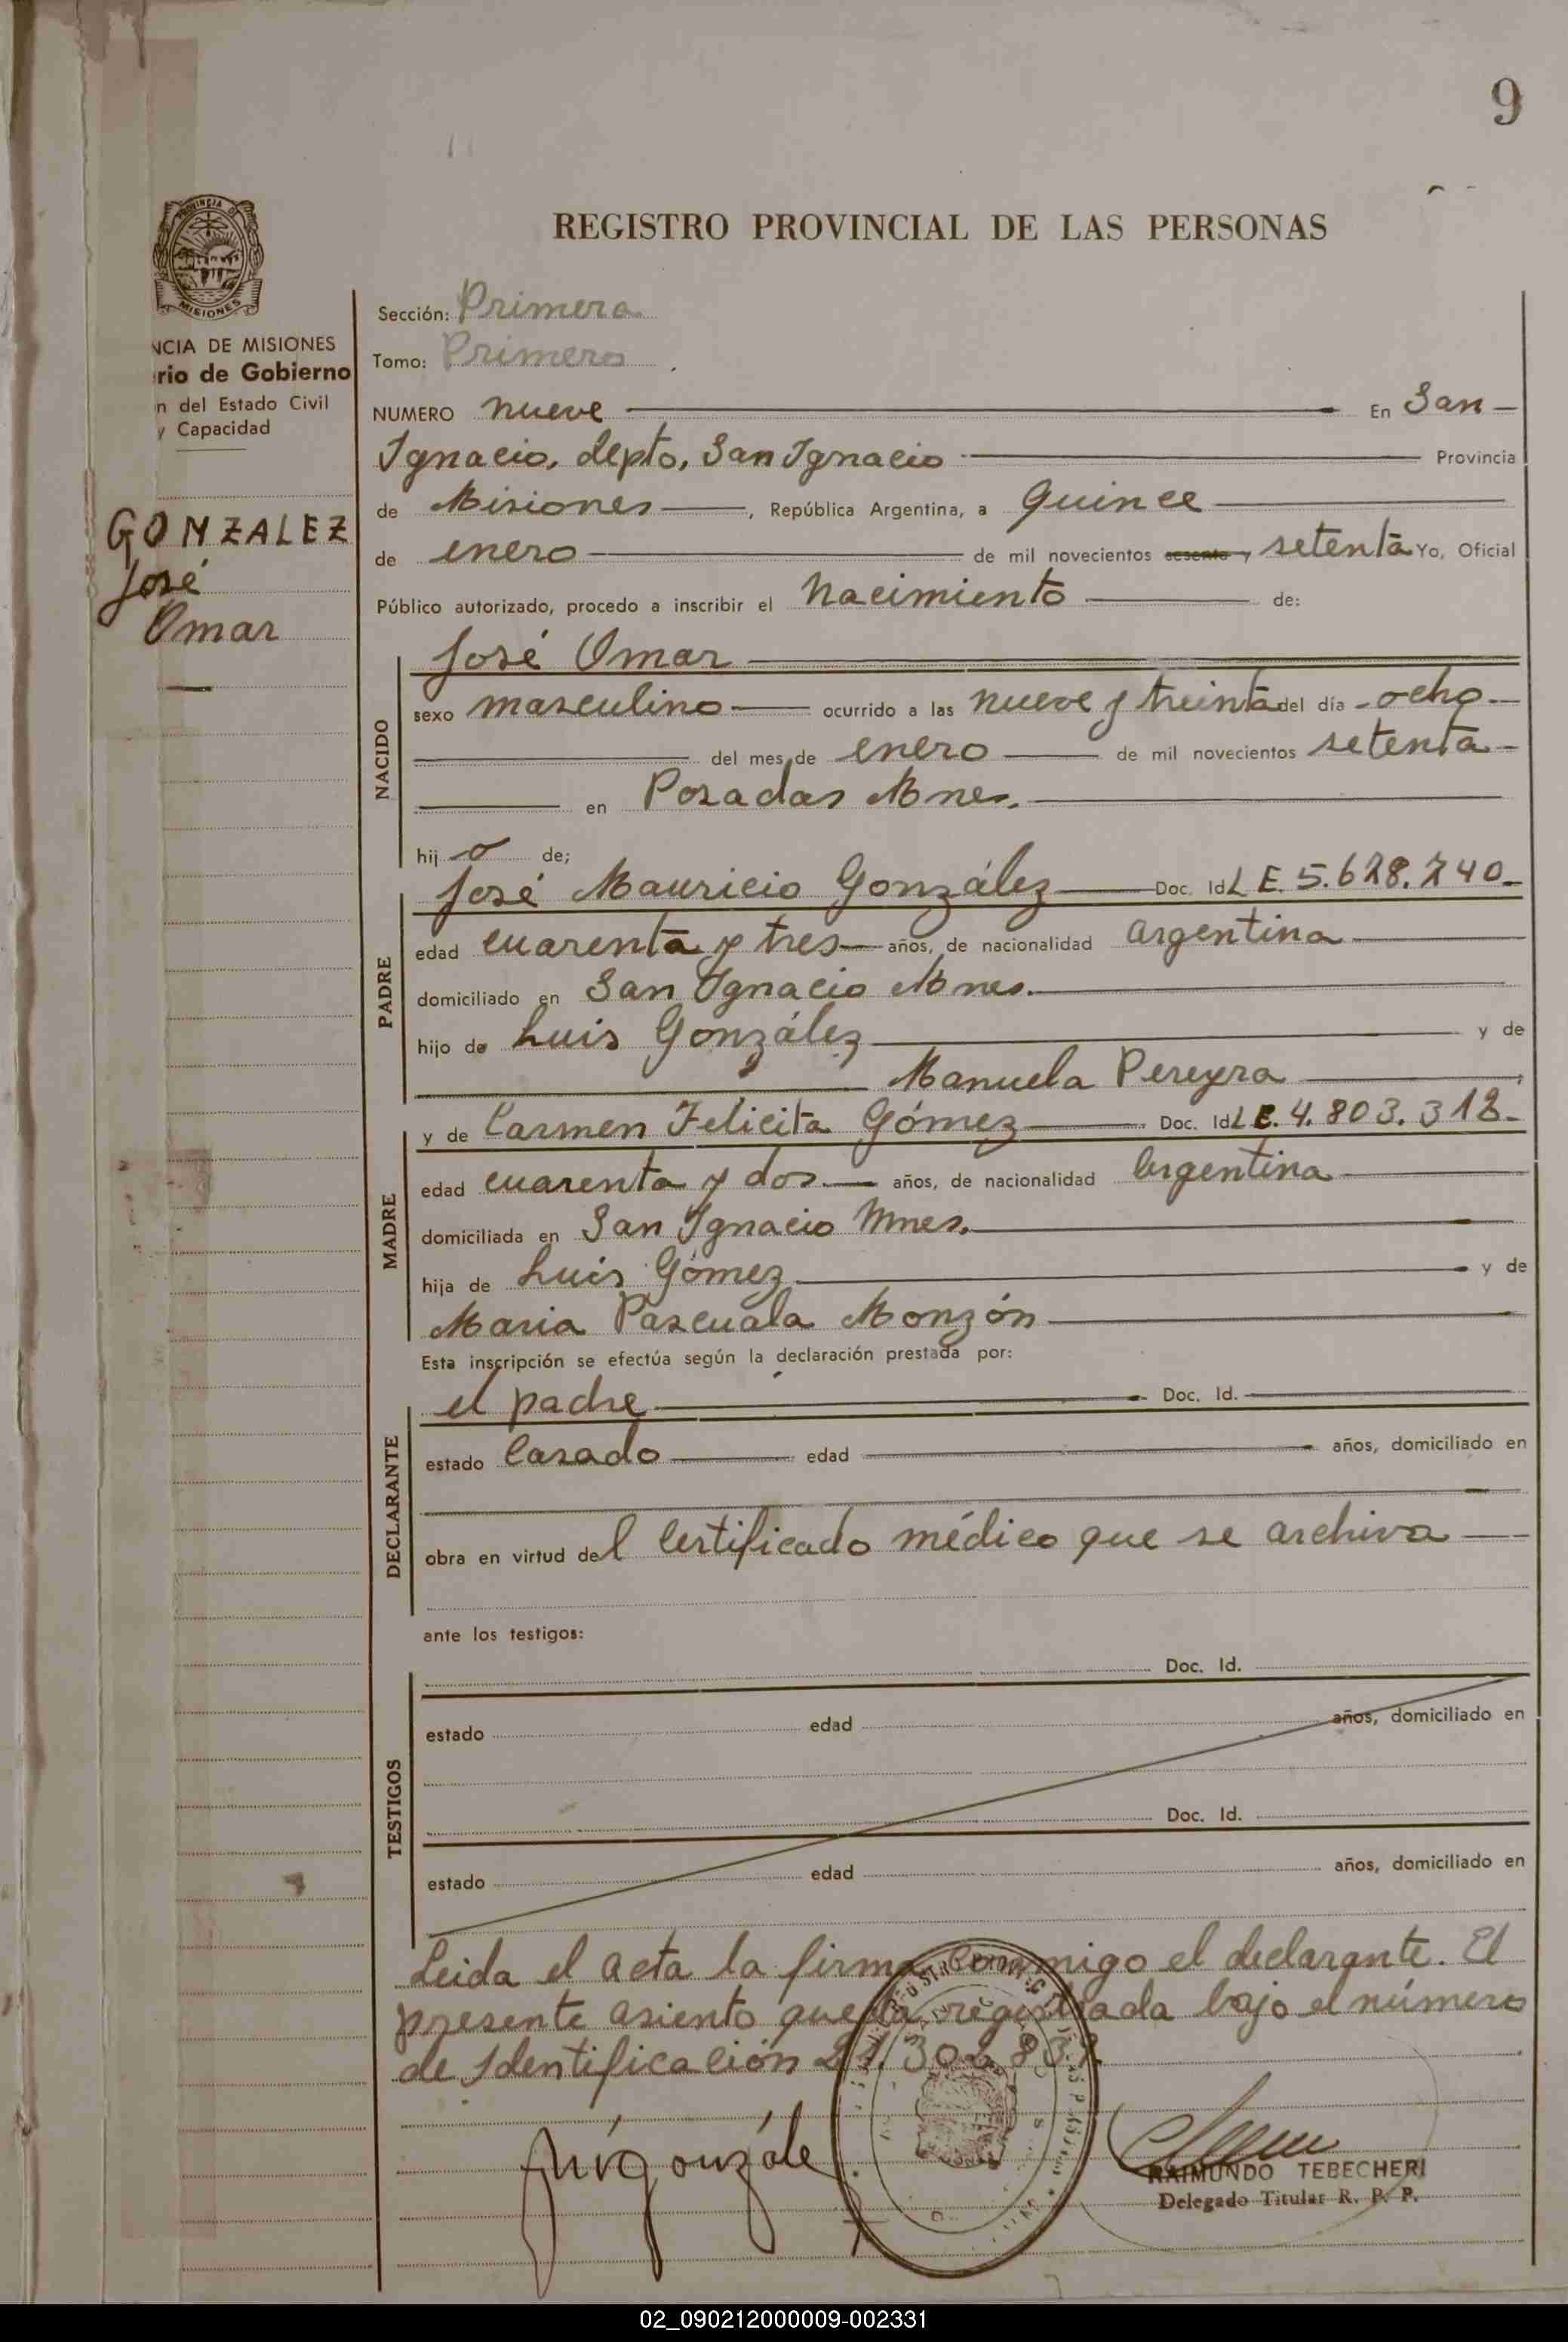 9
REGISTRO PROVINCIAL DE LAS PERSONAS
PROVINCIA DE
MISIONES
NCIA DE MISIONES
rio de Gobierno
n del Estado Civil
y Capacidad
GONZALEZ
José
Omar
Sección: Primera
Tomo: Primero
NUMERO nueve En San
Ignacio, depto, San Ignacio Provincia
de Misiones, República Argentina, a Quince
de enero de mil novecientos sesenta y setenta Yo, Oficial
Público autorizado, procedo a inscribir el Nacimiento de:
NACIDO
José Omar
sexo masculino ocurrido a las nueve y treinta del día ocho
del mes de enero de mil novecientos setenta
en Posadas Mnes.
hij o de;
PADRE
José Mauricio González Doc. Id L E. 5.628.240
edad cuarenta y tres años, de nacionalidad argentina
domiciliado en San Ignacio Mnes.
hijo de Luis González y de
Manuela Pereyra
MADRE
y de Carmen Felicita Gómez Doc. Id L E. 4.803.312
edad cuarenta y dos años, de nacionalidad Argentina
domiciliada en San Ignacio Mnes.
hija de Luis Gómez y de
Maria Pascuala Monzón
Esta inscripción se efectúa según la declaración prestada por:
DECLARANTE
el padre Doc. Id.
estado Casado edad años, domiciliado en
obra en virtud del Certificado médico que se archiva
ante los testigos:
TESTIGOS
Doc. Id.
estado edad años, domiciliado en
Doc. Id.
estado edad años, domiciliado en
Leida el acta la firma conmigo el declarante. El
presente asiento queda registrada bajo el número
de Identificación
RAIMUNDO TEBECHERI
Delegado Titular R. P. P.
02_090212000009-002331